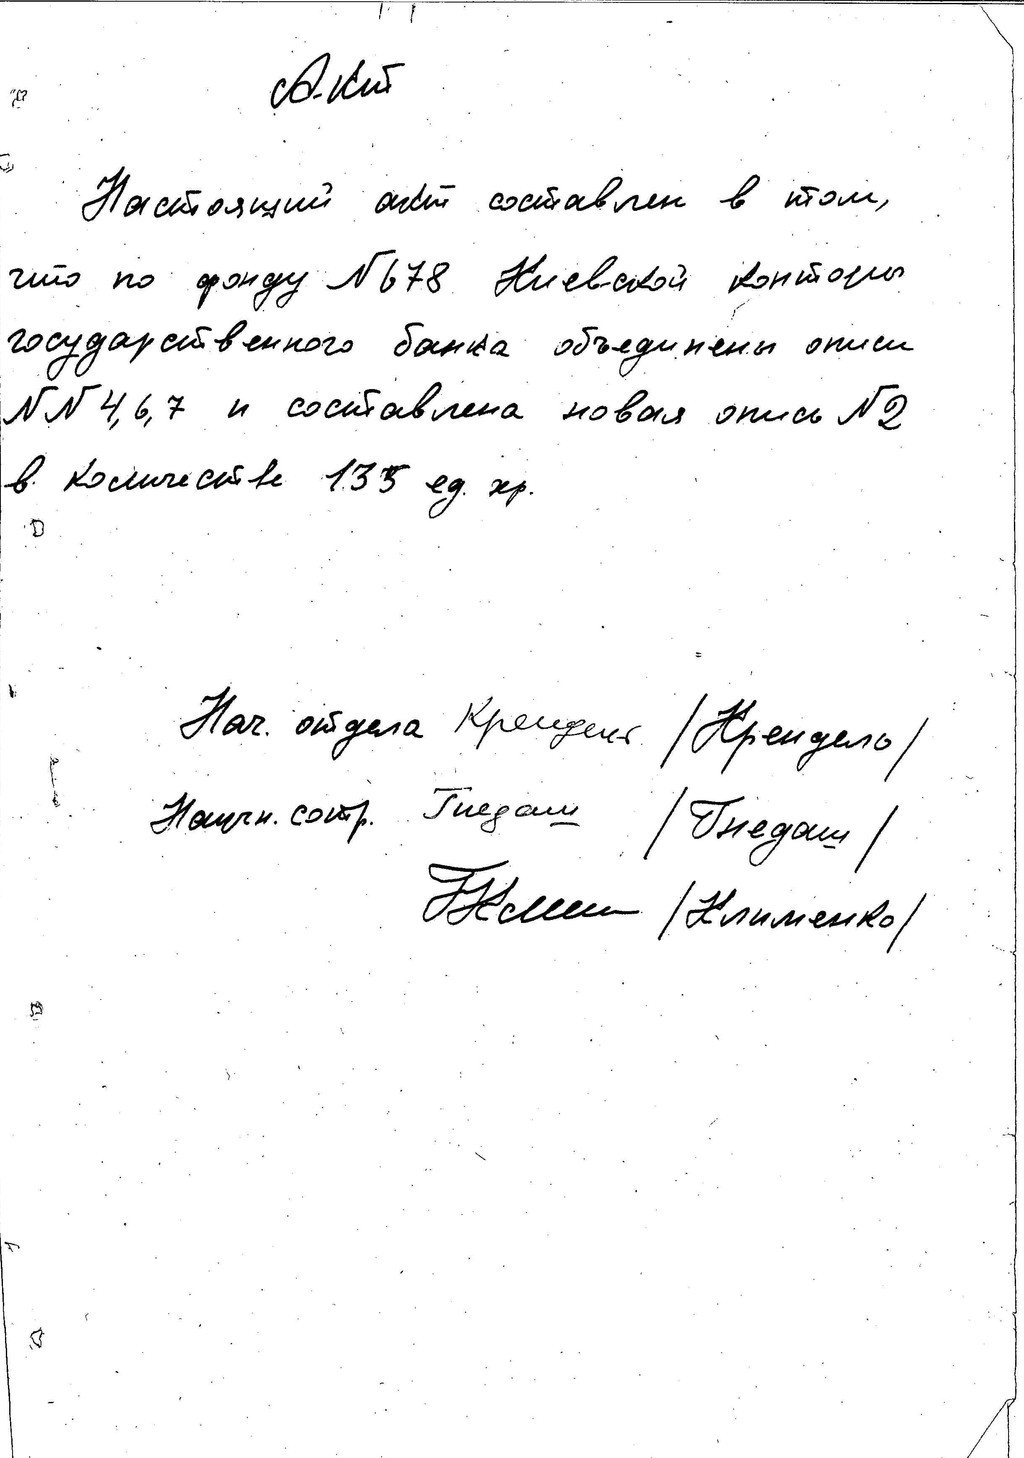 Акт
Настоящий акт составлен в том,
что по фонду N 678 Киевской конторы
государственного банка объединены описи
NN 4, 6, 7 и составлена новая опись N 2
в количестве 135 ед. хр.
Нач. отдела Крендель /Крендель/
Научн. сотр. Гнедаш /Гнедаш/
/Клименко/